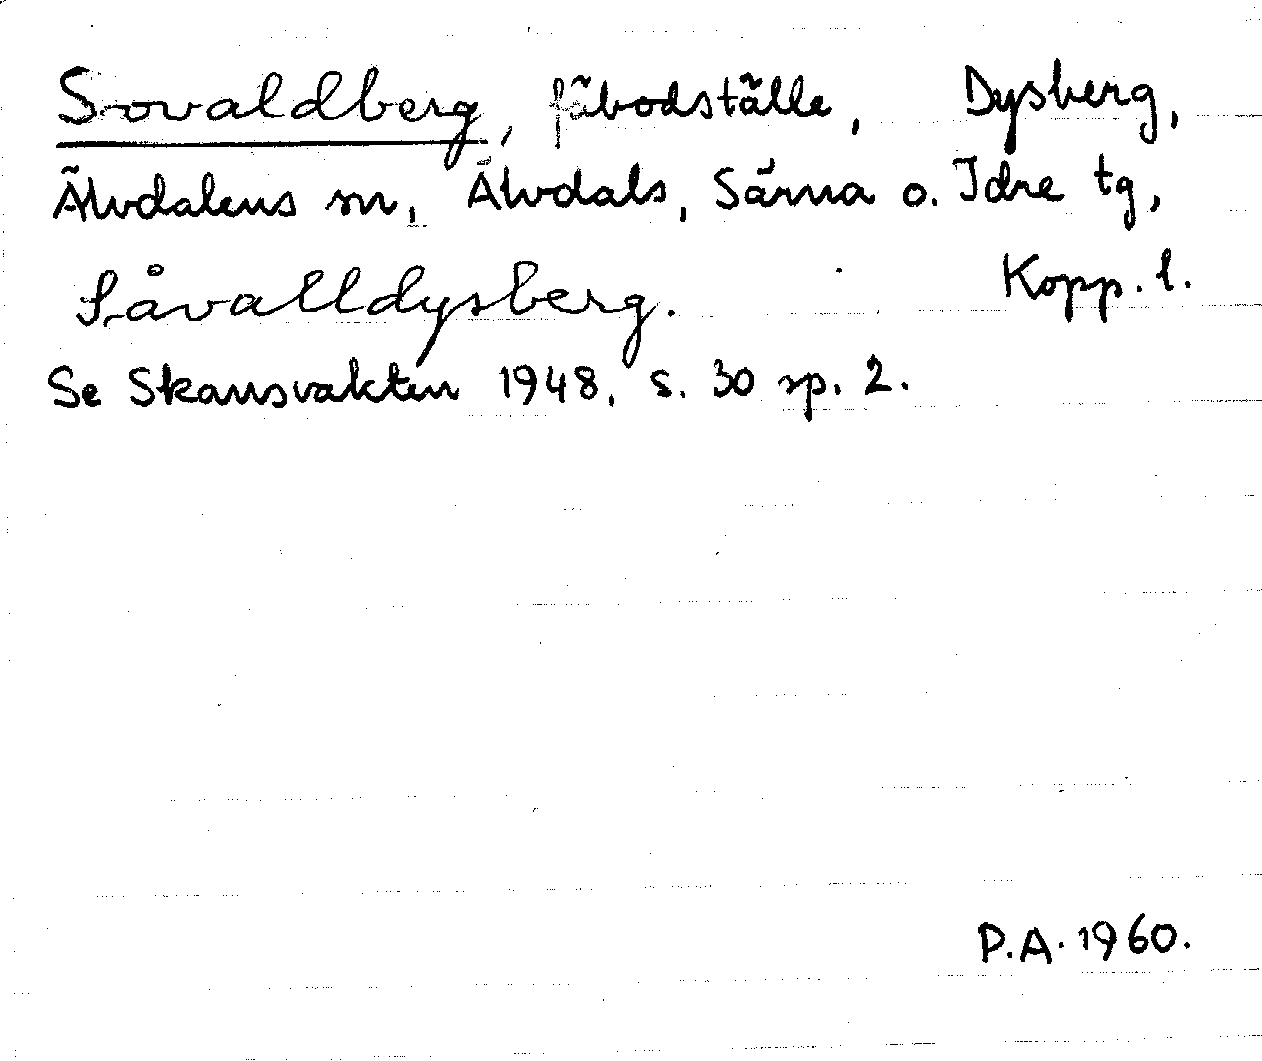 Sovaldberg, fäbodställe, Dysberg,
Älvdalens sn, Älvdals, Särna o. Idre tg,
Såvalldysberg. Kopp. l.
Se Skansvakten 1948, s. 30 sp. 2.
P.A. 1960.